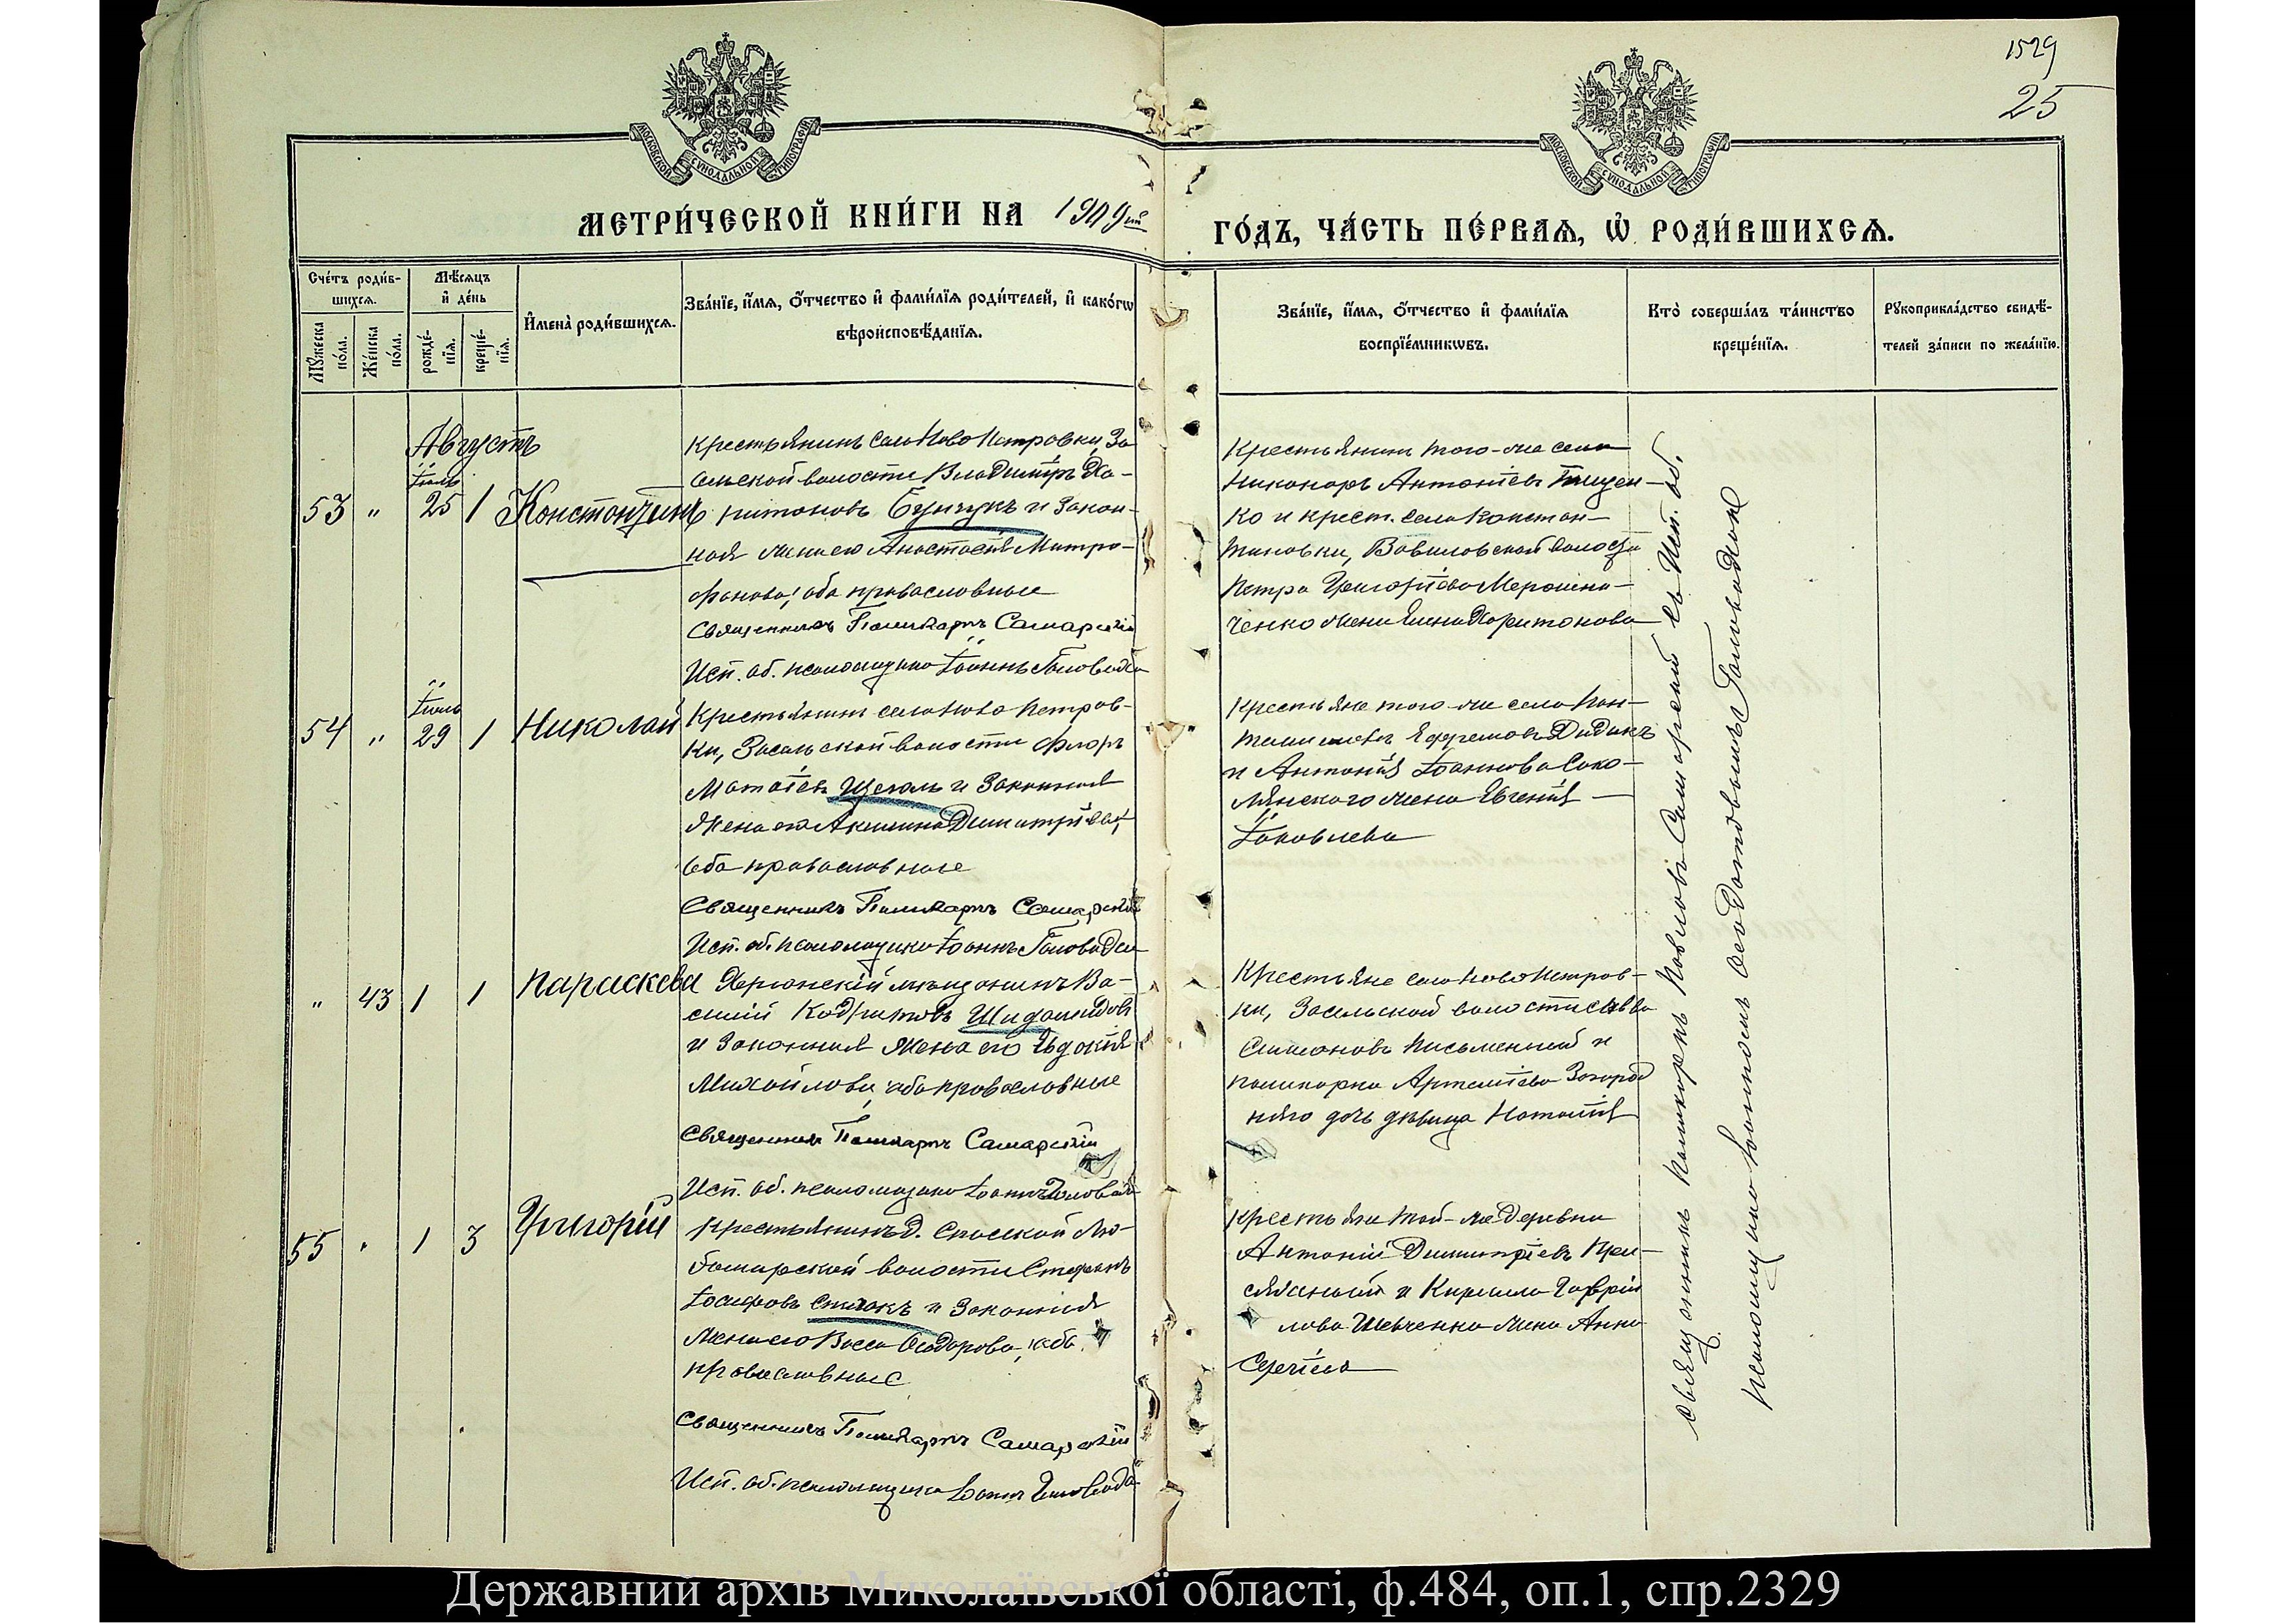 1529
25
МОСКОВСКОЙ СѴНОДАЛЬНОЙ ТИПОГРАФІИ
МОСКОВСКОЙ СѴНОДАЛЬНОЙ ТИПОГРАФІИ
МЕТРИ́ЧЕСКОЙ КНИ́ГИ НА 1909 ый
ГО́ДЪ, ЧА́СТЬ ПЕ́РВАѦ, Ѡ҆ РОДИ́ВШИХСѦ.
Сче́тъ роди́в-
шихсѧ.
Мꙋ́жеска
по́ла.
Же́нска
по́ла.
Мѣ́сѧцъ
и҆ де́нь
рожде́-
нїѧ.
креще́-
нїѧ.
И҆мена̀ роди́вшихсѧ.
Зва́нїе, и҆́мѧ, ѻ҆́тчество и҆ фами́лїѧ роди́телей, и҆ како́гѡ
вѣроисповѣ́данїѧ.
Зва́нїе, и҆́мѧ, ѻ҆́тчество и҆ фами́лїѧ
воспрїе́мникѡвъ.
Кто̀ соверша́лъ та́инство
креще́нїѧ.
Рꙋкоприкла́дство свидѣ́-
телей за́писи по жела́нїю.
Августъ
Іюль
53 " 25 1 Константинъ
Крестьянинъ села Ново Петровки, За
сельской волости Владимiръ Ха-
ритоновъ Бунчукъ и закон-
ная жена его Анастасія Митро-
фанова; оба православные
Священникъ Поликарпъ Самарскій
Исп. об. псаломщика Іоаннъ Головадск
Крестьянинъ того-же села
Никаноръ Антоніевъ Тищен-
ко и крест. села Констан-
тиновки, Вавиловской волости
Петра Григоріева Мерошни-
ченко жена Елена Харитонова
Іюль
54 " 29 1 Николай
Крестьянинъ села Ново Петров-
ки, Засельской волости Флоръ
Матвеѣвъ Щеголь и законная
жена его Акилина Димитріева;
оба православные
Священникъ Поликарпъ Самарскій
Исп. об. псаломщика Іоаннъ Головадск
Крестьяне того-же села Пан-
телимонъ Ефремовъ Дидыкъ
и Антонія Іоаннова Соко-
лянского жена Евгенія
Іаковлева
" 43 1 1 Параскева
Херсонскій мѣщанинъ Ва-
силій Кодратовъ
и законная жена его Евдокія
Михайлова, оба православные
Священникъ Поликарпъ Самарскій
Исп. об. псаломщика Іоаннъ Головад
Крестьяне села Ново Петров-
ки, Засельской волости Савва
Симоновъ Письменный и
Поликарпа Артеміева Загород
няго дочь дѣвица Наталія
55 " 1 3 Григорій
Крестьянинъ д. Спасской Лю-
бомирской волости Стефанъ
Іосифовъ Спивакъ и законная
жена его Васса Ѳеодорова, оба
православные
Священникъ Поликарпъ Самарскій
Исп. об. псаломщика Іоаннъ Головад
Крестьяне той-же деревни
Антоній Димитріевъ При-
сяжный и Кирилла Гаврiи
лова Шевченка жена Анна
Сергіева
Священникъ Поликарпъ Павловъ Самарскій съ Исп. об.
псаломщика Іоанномъ Головадскимъ
Державний архів Миколаївської області, ф.484, оп.1, спр.2329